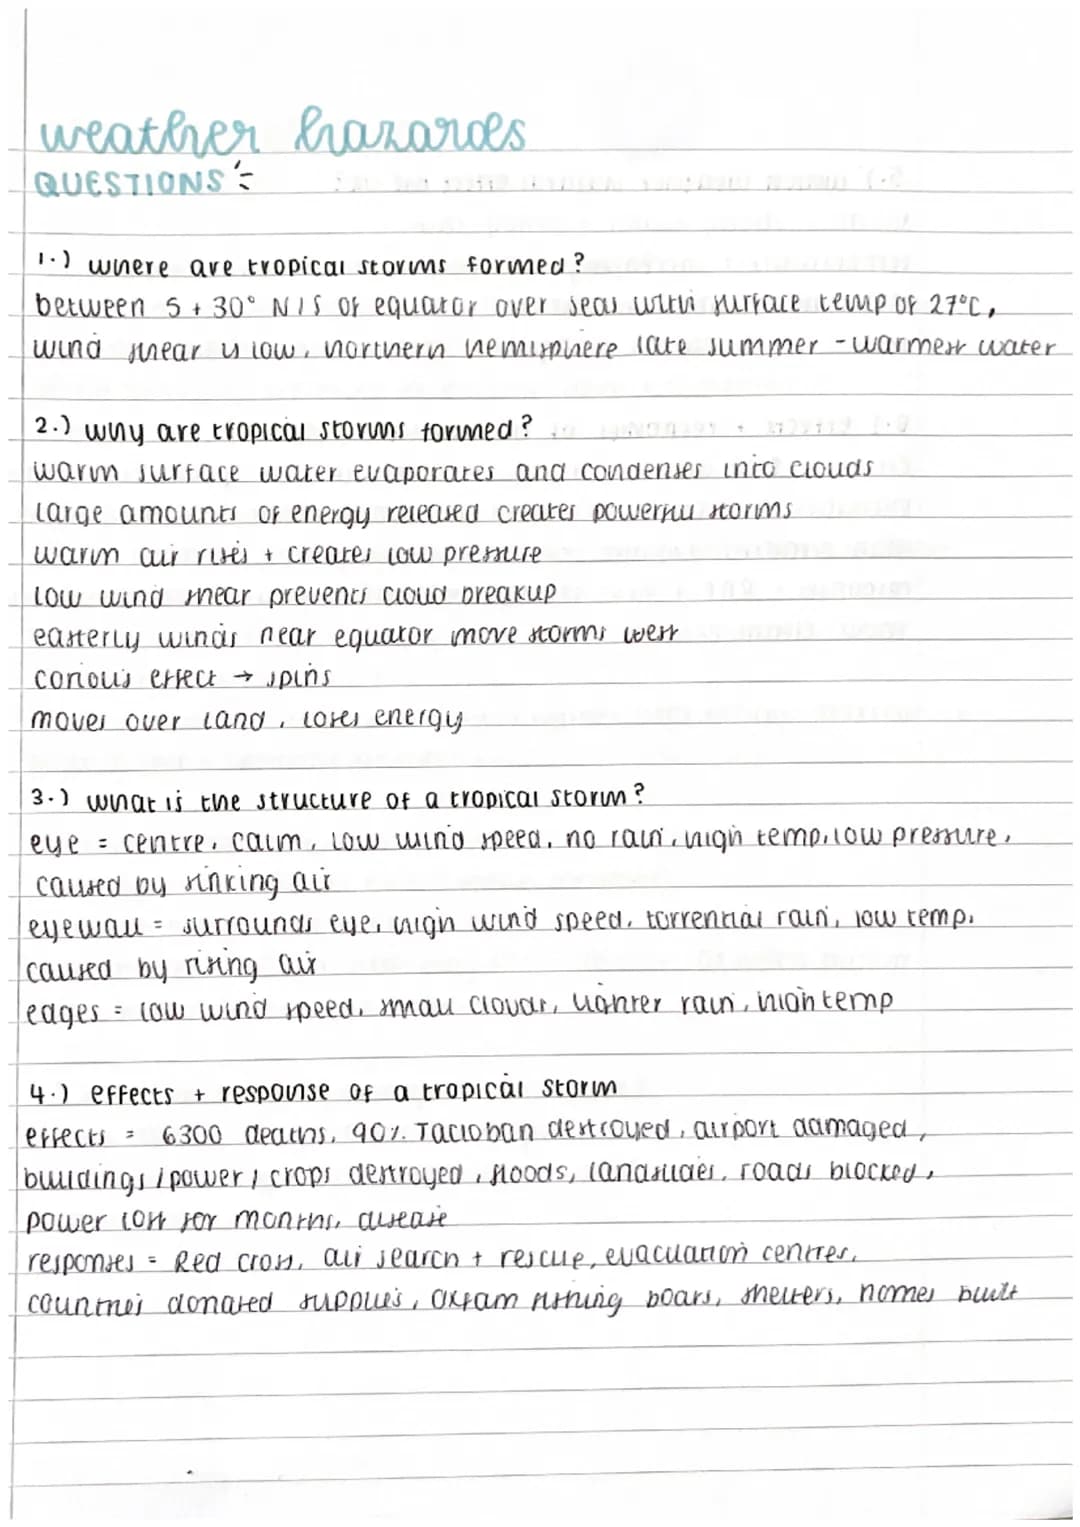 weather hazards
QUESTIONS :-
1.) where are tropical storms formed?
between 5 + 30° N/S of equator over seas with surface temp of 27°C,
wind shear is low, northern hemisphere late summer - warmest water
2.) why are tropical storms formed?
warm surface water evaporates and condenses into clouds
large amounts of energy released creates powerful storms
warm air rises + creates low pressure
low wind shear prevents cloud breakup
easterly winds near equator move storms west
coriolis effect → spins
moves over land, loses energy
3.) what is the structure of a tropical storm?
eye = centre, calm, low wind speed, no rain, high temp, low pressure,
caused by sinking air
eyewall = surrounds eye, high wind speed, torrential rain, low temp,
caused by rising air
edges = low wind speed, small clouds, lighter rain, high temp
4.) effects + response of a tropical storm
effects = 6300 deaths, 90% Tacloban destroyed, airport damaged,
buildings / power / crops destroyed, floods, landslides, roads blocked,
power lost for months, disease
responses = Red cross, air search + rescue, evacuation centres,
countries donated supplies, Oxfam fishing boats, shelters, homes built